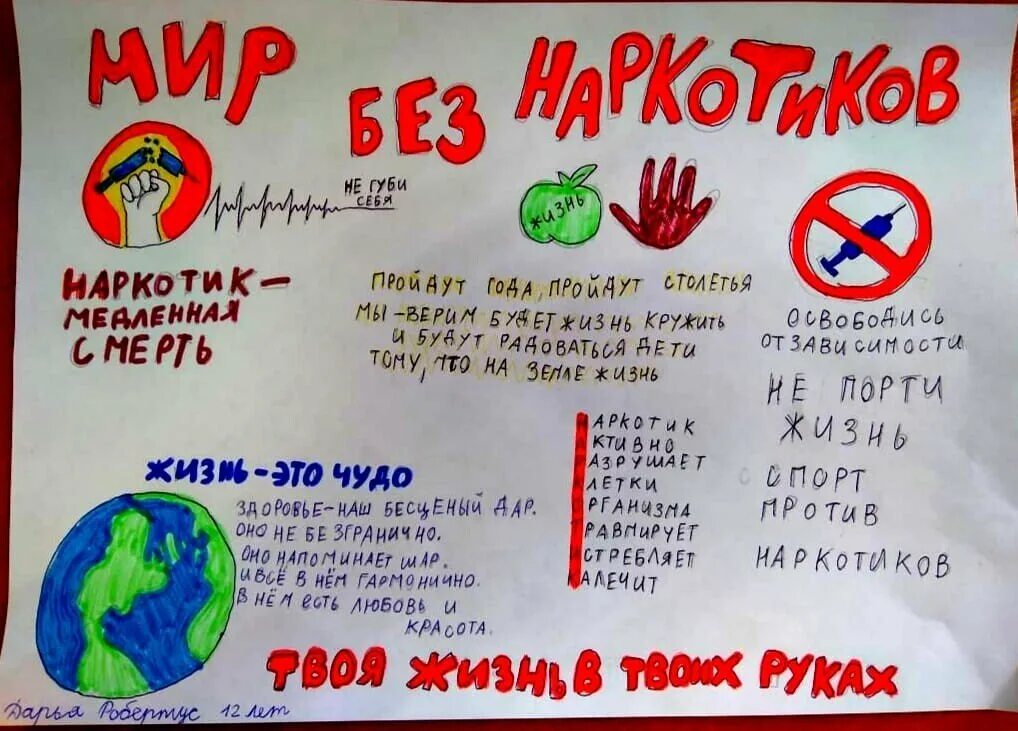 МИР БЕЗ НАРКОТИКОВ
НЕ ГУБИ
СЕБЯ
ЖИЗНЬ
НАРКОТИК —
МЕДЛЕННАЯ
СМЕРТЬ
ПРОЙДУТ ГОДА, ПРОЙДУТ СТОЛЕТЬЯ
МЫ - ВЕРИМ БУДЕТ ЖИЗНЬ КРУЖИТЬ
И БУДУТ РАДОВАТЬСЯ ДЕТИ
ТОМУ, ЧТО НА ЗЕМЛЕ ЖИЗНЬ
ОСВОБОДИСЬ
ОТ ЗАВИСИМОСТИ
НЕ ПОРТИ
ЖИЗНЬ
СПОРТ
ПРОТИВ
НАРКОТИКОВ
НАРКОТИК
АКТИВНО
РАЗРУШАЕТ
КЛЕТКИ
ОРГАНИЗМА
ТРАВМИРУЕТ
ИСТРЕБЛЯЕТ
КАЛЕЧИТ
ЖИЗНЬ - ЭТО ЧУДО
ЗДОРОВЬЕ - НАШ БЕСЦЕНЫЙ ДАР.
ОНО НЕ БЕЗГРАНИЧНО.
ОНО НАПОМИНАЕТ ШАР.
И ВСЁ В НЁМ ГАРМОНИЧНО.
В НЁМ ЕСТЬ ЛЮБОВЬ И
КРАСОТА.
ТВОЯ ЖИЗНЬ В ТВОИХ РУКАХ
Дарья Робертус 12 лет